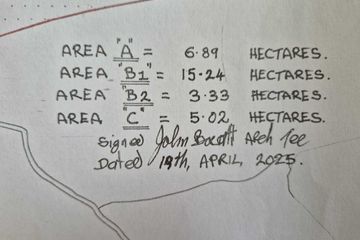 AREA "A" = 6.89 HECTARES.
AREA "B1" = 15.24 HECTARES.
AREA "B2" = 3.33 HECTARES.
AREA "C" = 5.02 HECTARES.
Signed John
Dated 19th, APRIL, 2025.